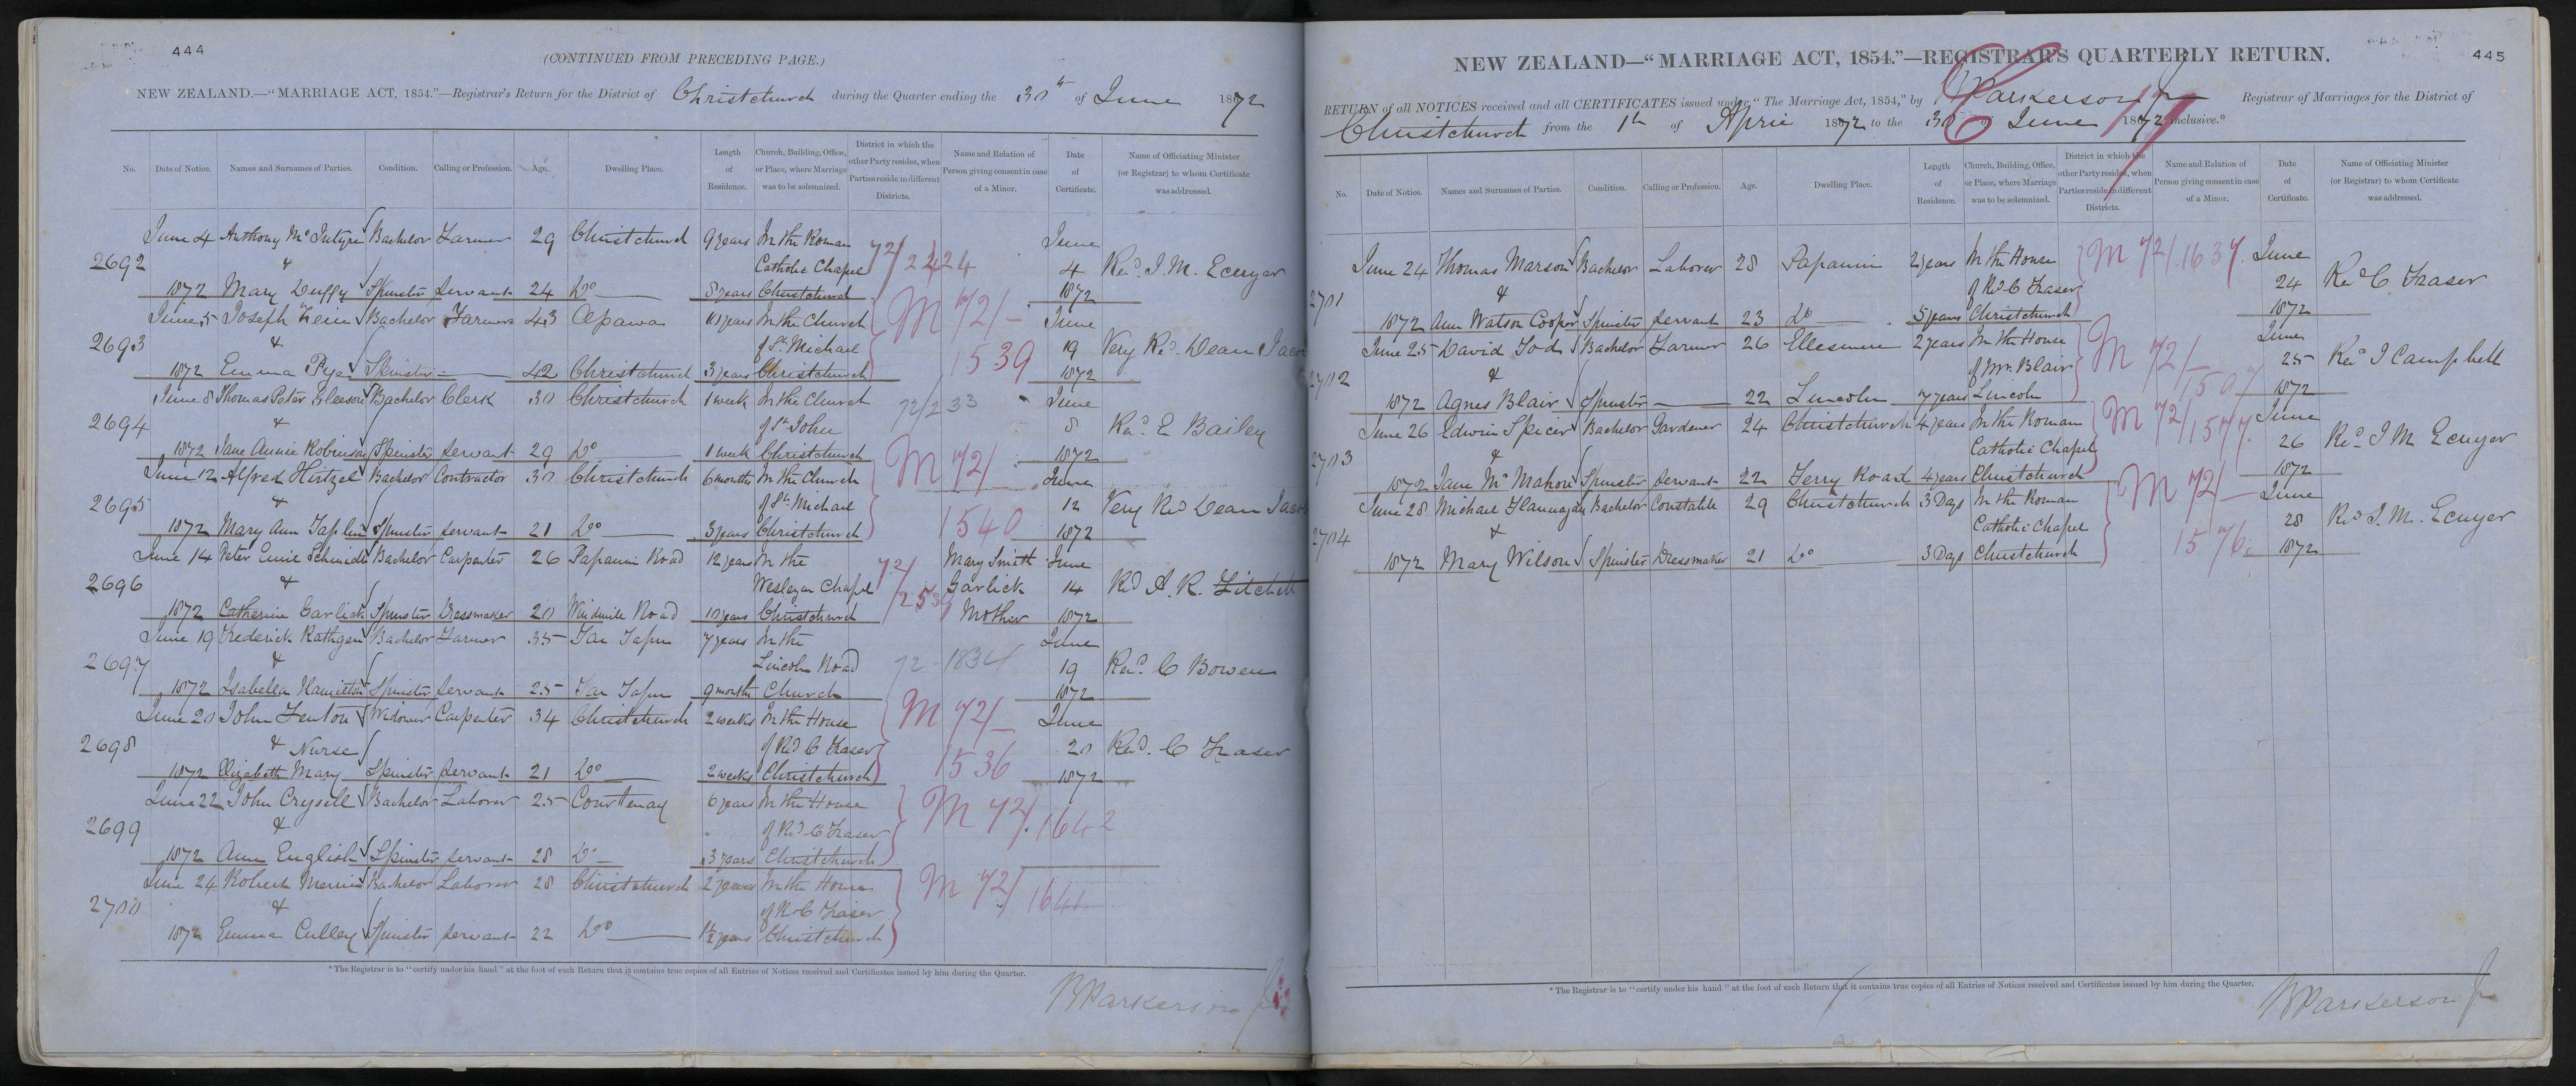 444
(CONTINUED FROM PRECEDING PAGE.)
NEW ZEALAND.—"MARRIAGE ACT, 1854."—Registrar's Return for the District of Christchurch during the Quarter ending the 30th of June 1872
No. Date of Notice. Names and Surnames of Parties. Condition. Calling or Profession. Age. Dwelling Place. Length of Residence. Church, Building, Office, or Place, where Marriage was to be solemnized. District in which the other Party resides, when Parties reside in different Districts. Name and Relation of Person giving consent in case of a Minor. Date of Certificate. Name of Officiating Minister (or Registrar) to whom Certificate was addressed.
June 4 Anthony McIntyre Bachelor Farmer 29 Christchurch 9 years In the Roman June
2692 & Catholic Chapel 72/2424 4 Revd. J. M. Ecuyer
1872 Mary Duffy Spinster Servant 24 Do 8 years Christchurch 1872
June 5 Joseph Bachelor Farmer 43 Opawa 10 years In the Church M 72/- June
2693 & of St. Michael 1539 19 Very Revd. Dean Jacobs
1872 Emma Pye Spinster — 42 Christchurch 3 years Christchurch 1872
June 8 Thomas Peter Gleeson Bachelor Clerk 30 Christchurch 1 week In the Church 72/233 June
2694 & of St. John 8 Revd. E Bailey
1872 Jane Annie Robinson Spinster Servant 29 Do 1 week Christchurch 1872
June 12 Alfred Hirtzel Bachelor Contractor 30 Christchurch 6 months In the Church M 72/- June
2695 & of St. Michael 1540 12 Very Revd Dean Jacobs
1872 Mary Ann Taplin Spinster Servant 21 Do 3 years Christchurch 1872
June 14 Peter Emil Schmidt Bachelor Carpenter 26 Papanui Road 12 years In the Mary Smith June
2696 & Wesleyan Chapel 72/ Garlick 14 Revd A. R. Fitchett
1872 Catherine Garlick Spinster Dressmaker 20 Windmill Road 10 years Christchurch Mother 1872
June 19 Frederick Rathgen Bachelor Farmer 35 Tai Tapu 7 years In the June
2697 & Lincoln Road 72.1834 19 Revd. C Bowen
1872 Isabella Hamilton Spinster Servant 25 Tai Tapu 9 months Church 1872
June 20 John Fenton Widower Carpenter 34 Christchurch 2 weeks In the House M 72/- June
2698 & Nurse of Revd C Fraser 1536 20 Revd. C Fraser
1872 Elizabeth Mary Spinster Servant 21 Do 2 weeks Christchurch 1872
June 22 John Crysell Bachelor Laborer 25 Courtenay 6 years In the House M 72/.1642
2699 & of Revd C Fraser
1872 Ann English Spinster Servant 28 Do 3 years Christchurch
June 24 Robert Bachelor Laborer 28 Christchurch 2 years In the House M 72/1641
2700 & of R C Fraser
1872 Emma Culley Spinster Servant 22 Do 1½ years Christchurch
* The Registrar is to "certify under his hand" at the foot of each Return that it contains true copies of all Entries of Notices received and Certificates issued by him during the Quarter.
Parkerson Jr
445
NEW ZEALAND—"MARRIAGE ACT, 1854."—REGISTRAR'S QUARTERLY RETURN.
RETURN of all NOTICES received and all CERTIFICATES issued under "The Marriage Act, 1854," by Parkerson Jr Registrar of Marriages for the District of
Christchurch from the 1st of April 1872 to the 30 of June 1872 inclusive.*
No. Date of Notice. Names and Surnames of Parties. Condition. Calling or Profession. Age. Dwelling Place. Length of Residence. Church, Building, Office, or Place, where Marriage was to be solemnized. District in which the other Party resides, when Parties reside in different Districts. Name and Relation of Person giving consent in case of a Minor. Date of Certificate. Name of Officiating Minister (or Registrar) to whom Certificate was addressed.
June 24 Thomas Marson Bachelor Laborer 28 Papanui 2 years In the House M 72/.1637. June
2701 & of Revd C Fraser 24 Revd C Fraser
1872 Ann Watson Cooper Spinster Servant 23 Do 5 years Christchurch 1872
June 25 David Tod Bachelor Farmer 26 Ellesmere 2 years In the House M 72/- June
2702 & of Mr. Blair 1507 25 Revd J Campbell
1872 Agnes Blair Spinster — 22 Lincoln 7 years Lincoln 1872
June 26 Edwin Spicer Bachelor Gardener 24 Christchurch 4 years In the Roman M 72/1577. June
2703 & Catholic Chapel 26 Revd J M Ecuyer
1872 Jane McMahon Spinster Servant 22 Ferry Road 4 years Christchurch 1872
June 28 Michael Flannagan Bachelor Constable 29 Christchurch 3 Days In the Roman M 72/- June
2704 & Catholic Chapel 1576 28 Revd J. M. Ecuyer
1872 Mary Wilson Spinster Dressmaker 21 Do 3 Days Christchurch 1872
* The Registrar is to "certify under his hand" at the foot of each Return that it contains true copies of all Entries of Notices received and Certificates issued by him during the Quarter.
Parkerson Jr